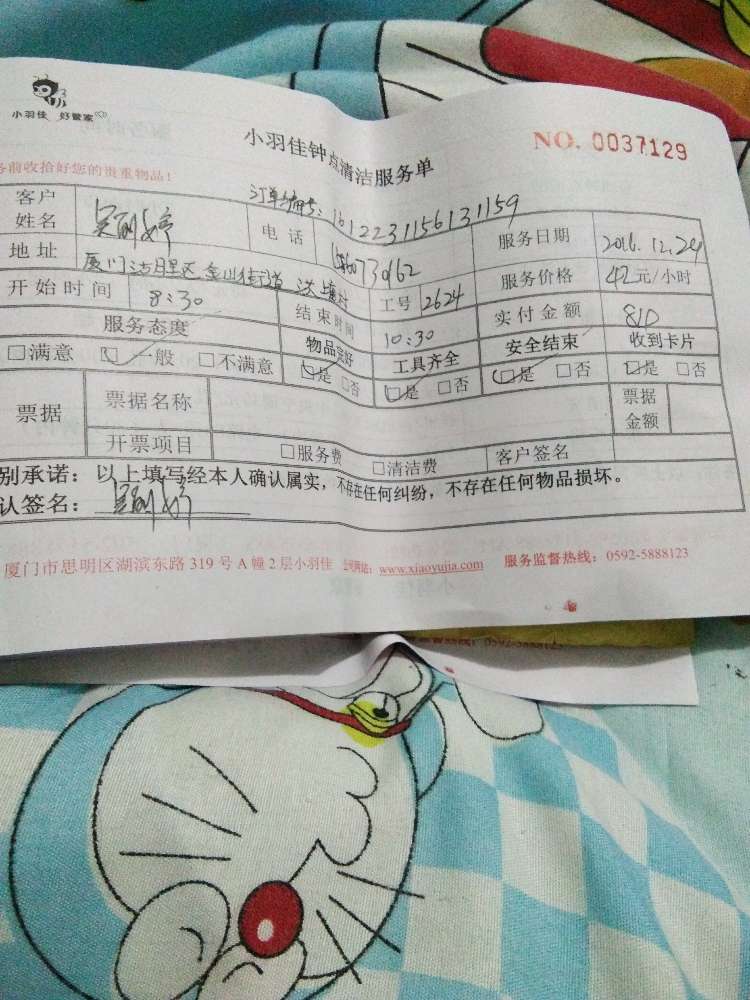 小羽佳 好管家
小羽佳钟点清洁服务单
NO. 0037129
务前收拾好您的贵重物品!
订单编号: 1612231156131159
客户姓名 电话 服务日期 2016.12.24
地址 厦门 区 金山街道 村 工号 2624 服务价格 42元/小时
开始时间 8:30 结束时间 10:30 实付金额
服务态度 物品完好 工具齐全 安全结束 收到卡片
□满意 □一般 □不满意 □是 □否 □是 □否 □是 □否 □是 □否
票据 票据名称 票据金额
开票项目 □服务费 □清洁费 客户签名
别承诺:以上填写经本人确认属实,不存在任何纠纷,不存在任何物品损坏。
认签名:
厦门市思明区湖滨东路 319 号 A 幢 2 层小羽佳 公司网站: www.xiaoyujia.com 服务监督热线: 0592-5888123